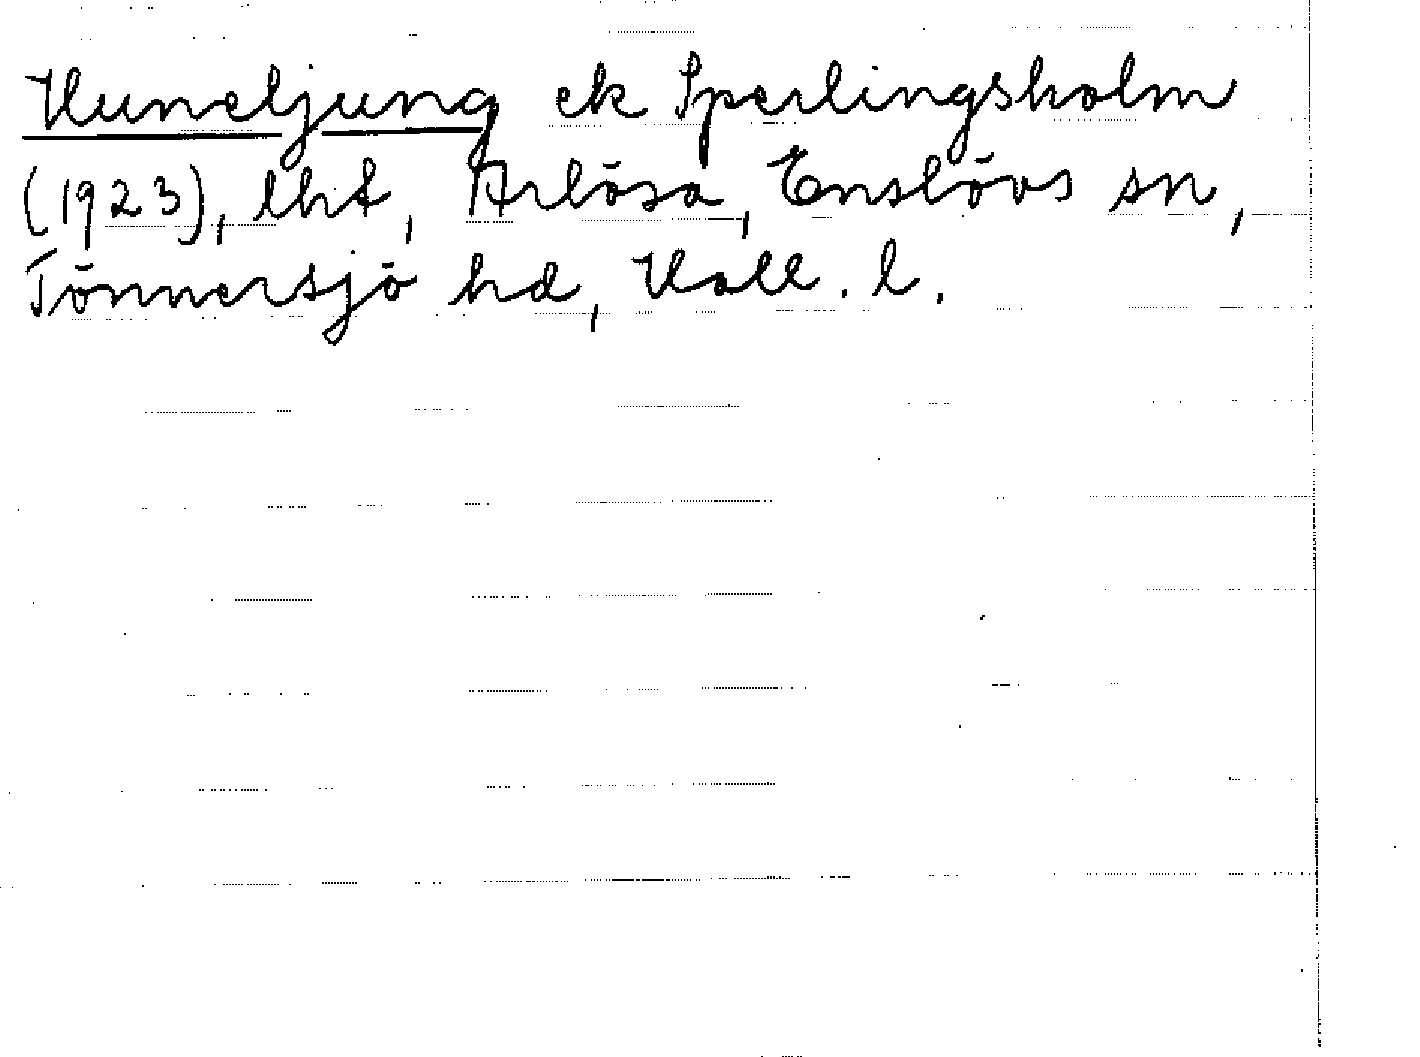 Huneljung ek Sperlingsholm
(1923), lht, Årlösa, Enslövs sn,
Tönnersjö hd, Hall. l.